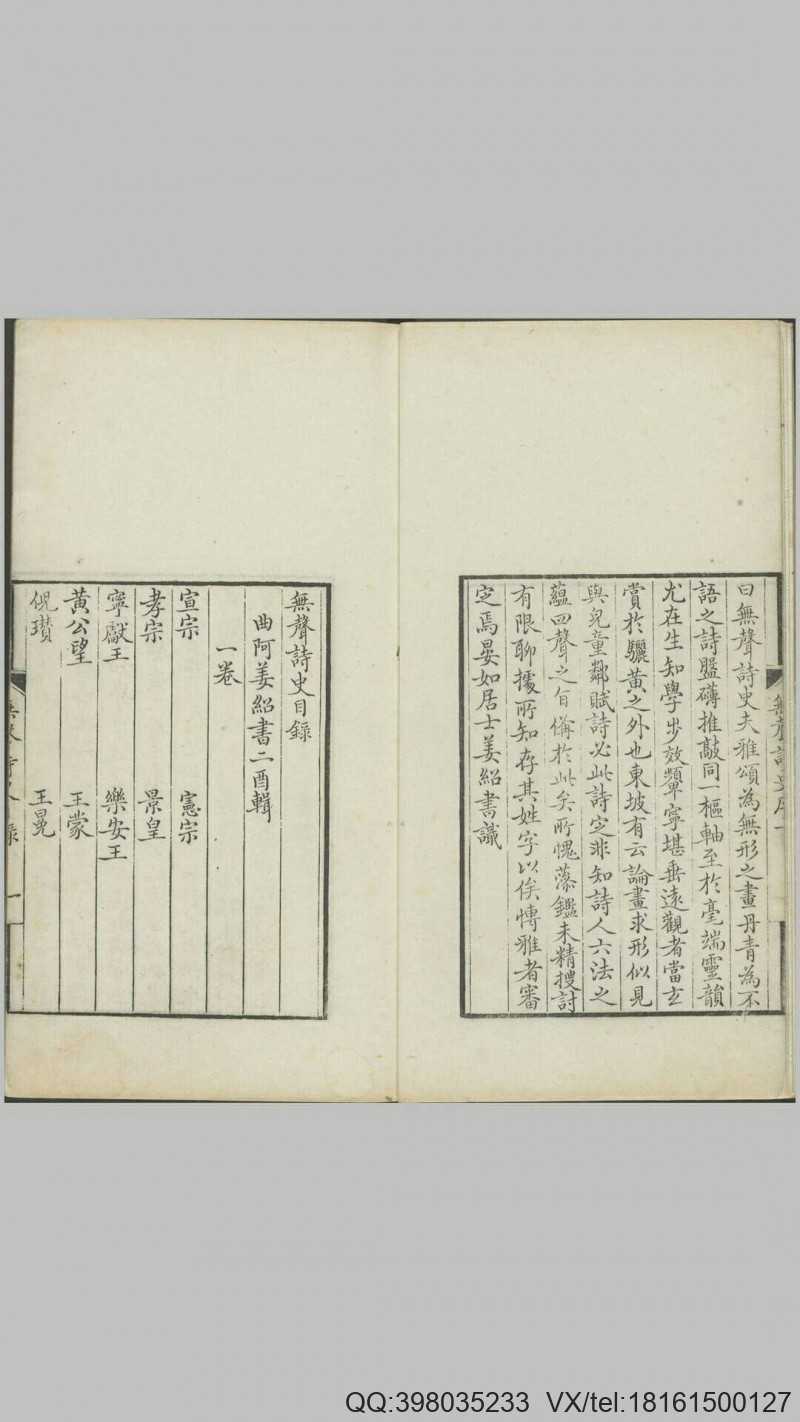 曰無聲詩史夫雅頌為無形之畫丹青為不
語之詩盤礴推敲同一樞軸至於毫端靈韻
尤在生知學步效顰寧堪垂遠觀者當玄
賞於驪黃之外也東坡有云論畫求形似見
與兒童鄰賦詩必此詩定非知詩人六法之
蘊四聲之旨備於此矣所愧藻鑑未精搜討
有限聊據所知存其姓字以俟博雅者審
定焉晏如居士姜紹書識
無聲詩史目錄
曲阿姜紹書二酉輯
一卷
宣宗 憲宗
孝宗 景皇
寧獻王 樂安王
黃公望 王蒙
倪瓚 王冕
QQ:398035233 VX/tel:18161500127